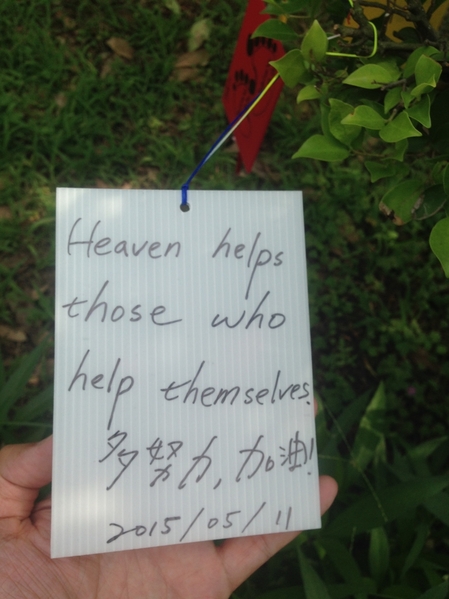 Heaven helps
those who
help themselves.
多努力,加油!
2015/05/11